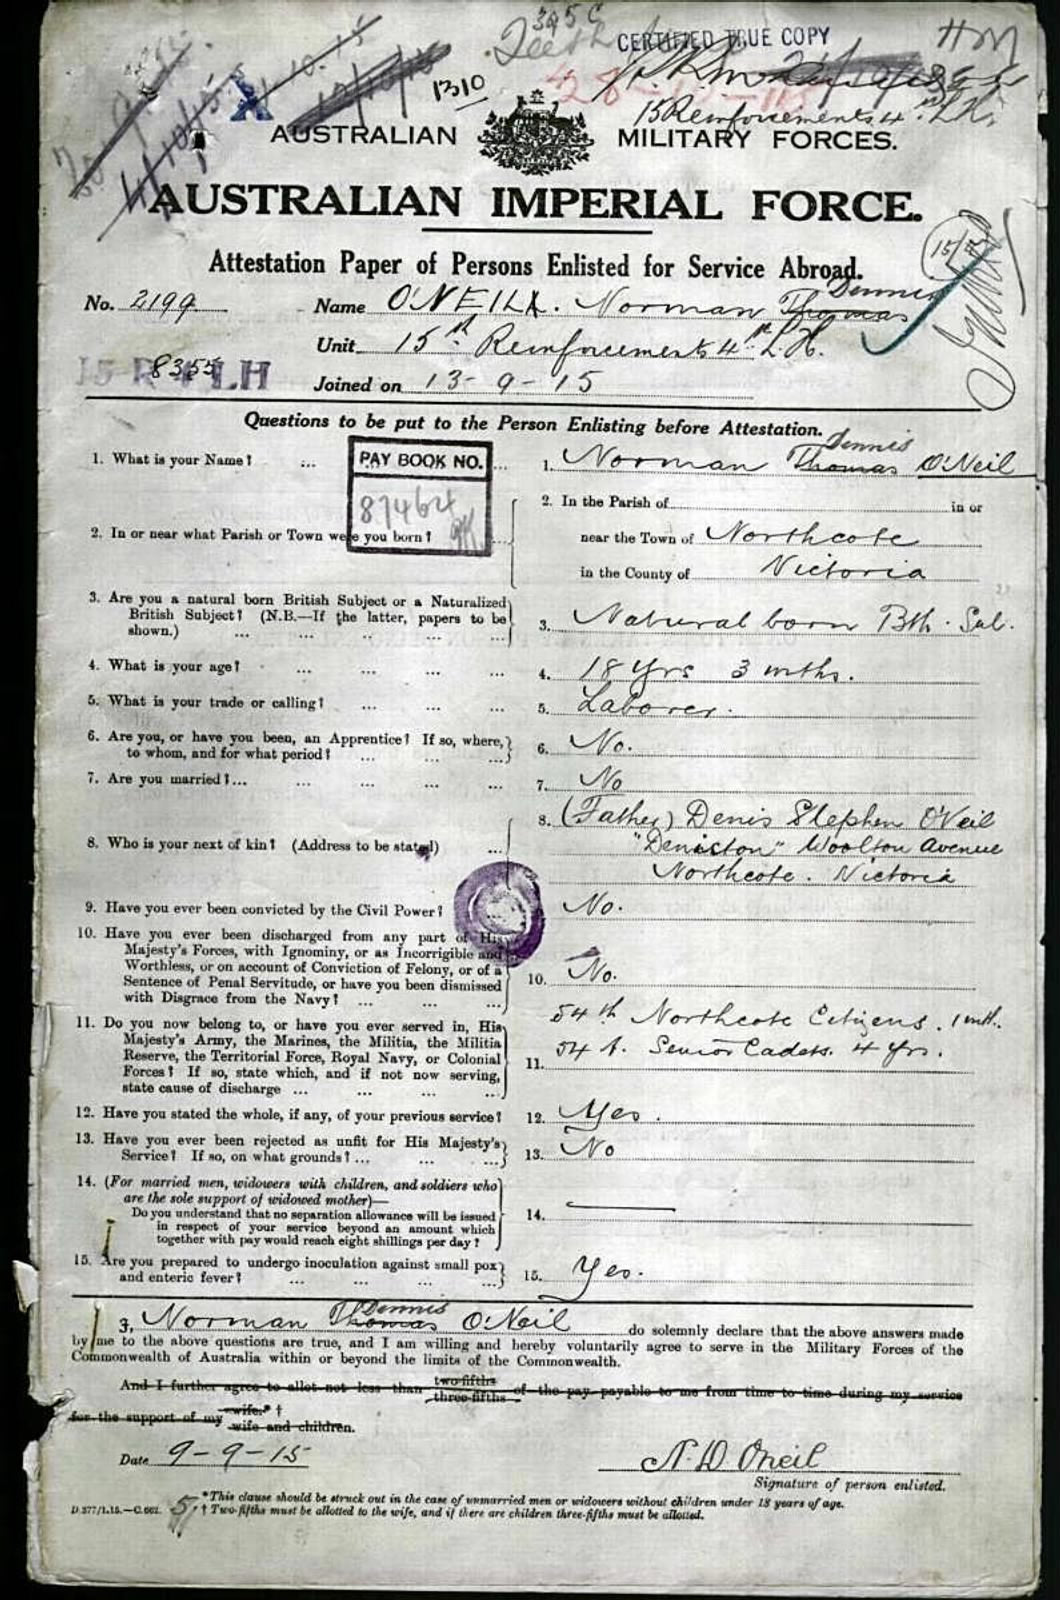 CERTIFIED TRUE COPY
1310
15 Reinforcements 4th L.H.
AUSTRALIAN MILITARY FORCES.
AUSTRALIAN IMPERIAL FORCE.
Attestation Paper of Persons Enlisted for Service Abroad.
Dennis
No. 2199 Name O'NEILL. Norman Thomas
Unit 15th Reinforcements 4th L.H.
8355
15 R 4 LH
Joined on 13-9-15
Questions to be put to the Person Enlisting before Attestation.
Dennis
1. What is your Name? ... ... 1. Norman Thomas O'Neil
PAY BOOK NO.
87464
2. In or near what Parish or Town were you born?
2. In the Parish of in or
near the Town of Northcote
in the County of Victoria
3. Are you a natural born British Subject or a Naturalized
British Subject? (N.B.—If the latter, papers to be
shown.) ... ... ... ... ...
3. Natural born Bth. Sub.
4. What is your age? ... ... ... ... 4. 18 yrs 3 mths.
5. What is your trade or calling? ... ... ... 5. Laborer.
6. Are you, or have you been, an Apprentice? If so, where,
to whom, and for what period? ... ... ...
6. No.
7. Are you married? ... ... ... ... ... 7. No
8. Who is your next of kin? (Address to be stated) ...
8. (Father) Denis Stephen O'Neil
"Deniston" Woolton Avenue
Northcote. Victoria
9. Have you ever been convicted by the Civil Power? No.
10. Have you ever been discharged from any part of His
Majesty's Forces, with Ignominy, or as Incorrigible and
Worthless, or on account of Conviction of Felony, or of a
Sentence of Penal Servitude, or have you been dismissed
with Disgrace from the Navy? ... ... ...
10. No.
11. Do you now belong to, or have you ever served in, His
Majesty's Army, the Marines, the Militia, the Militia
Reserve, the Territorial Force, Royal Navy, or Colonial
Forces? If so, state which, and if not now serving,
state cause of discharge ... ... ... ...
54th Northcote Citizens. 1 mth.
11. 54th. Senior Cadets. 4 yrs.
12. Have you stated the whole, if any, of your previous service? 12. Yes.
13. Have you ever been rejected as unfit for His Majesty's
Service? If so, on what grounds? ... ... ...
13. No
14. (For married men, widowers with children, and soldiers who
are the sole support of widowed mother)—
Do you understand that no separation allowance will be issued
in respect of your service beyond an amount which
together with pay would reach eight shillings per day?
14. —
15. Are you prepared to undergo inoculation against small pox
and enteric fever? ... ... ... ...
15. Yes.
Dennis
I, Norman Thomas O'Neil do solemnly declare that the above answers made
by me to the above questions are true, and I am willing and hereby voluntarily agree to serve in the Military Forces of the
Commonwealth of Australia within or beyond the limits of the Commonwealth.
And I further agree to allot not less than two-fifths three-fifths of the pay payable to me from time to time during my service
for the support of my wife.* † wife and children.
Date 9-9-15 N. D. Oneil
Signature of person enlisted.
*This clause should be struck out in the case of unmarried men or widowers without children under 18 years of age.
D.377/1.15.—C.662. † Two-fifths must be allotted to the wife, and if there are children three-fifths must be allotted.